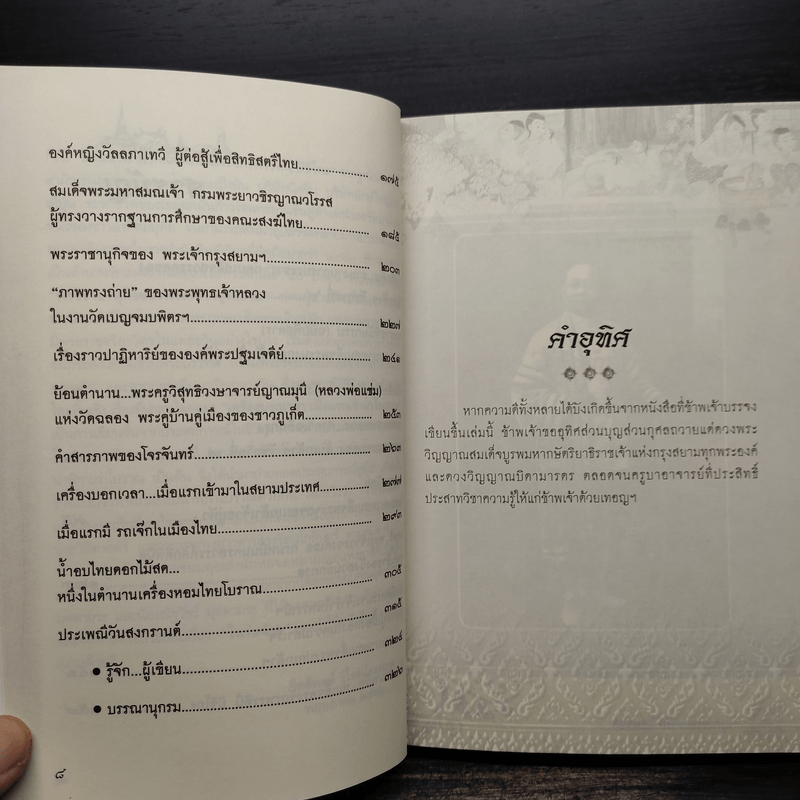 องค์หญิงวัลลภาเทวี ผู้ต่อสู้เพื่อสิทธิสตรีไทย.................... ๑๗๕
สมเด็จพระมหาสมณเจ้า กรมพระยาวชิรญาณวโรรส
ผู้ทรงวางรากฐานการศึกษาของคณะสงฆ์ไทย.................... ๑๘๕
พระราชานุกิจของ พระเจ้ากรุงสยามฯ.................... ๒๐๓
“ภาพทรงถ่าย” ของพระพุทธเจ้าหลวง
ในงานวัดเบญจมบพิตรฯ.................... ๒๒๗
เรื่องราวปาฏิหาริย์ขององค์พระปฐมเจดีย์.................... ๒๔๑
ย้อนตำนาน...พระครูวิสุทธิวงษาจารย์ญาณมุนี (หลวงพ่อแช่ม)
แห่งวัดฉลอง พระคู่บ้านคู่เมืองของชาวภูเก็ต.................... ๒๕๓
คำสารภาพของโจรจันทร์.................... ๒๖๓
เครื่องบอกเวลา...เมื่อแรกเข้ามาในสยามประเทศ.................... ๒๗๗
เมื่อแรกมี รถเจ๊กในเมืองไทย.................... ๒๙๓
น้ำอบไทยดอกไม้สด...
หนึ่งในตำนานเครื่องหอมไทยโบราณ.................... ๓๐๕
ประเพณีวันสงกรานต์.................... ๓๑๕
● รู้จัก...ผู้เขียน.................... ๓๒๔
● บรรณานุกรม.................... ๓๒๖
๘
คำอุทิศ
หากความดีทั้งหลายได้บังเกิดขึ้นจากหนังสือที่ข้าพเจ้าบรรจง
เขียนขึ้นเล่มนี้ ข้าพเจ้าขออุทิศส่วนบุญส่วนกุศลถวายแด่ดวงพระ
วิญญาณสมเด็จบูรพมหากษัตริยาธิราชเจ้าแห่งกรุงสยามทุกพระองค์
และดวงวิญญาณบิดามารดร ตลอดจนครูบาอาจารย์ที่ประสิทธิ์
ประสาทวิชาความรู้ให้แก่ข้าพเจ้าด้วยเทอญฯ